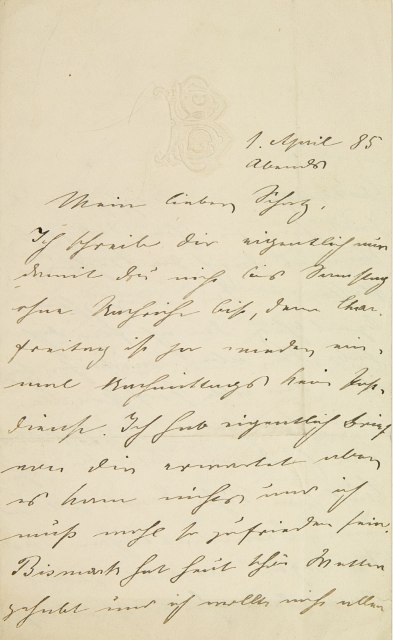 1. April 85
Abends
Mein lieber Schatz.
Ich schreibe dir eigentlich nur
damit du nicht bis Samstag
ohne Nachricht bist, denn Char-
freitag ist ja wieder ein-
mal Nachmittags kein Post-
dienst. Ich hab eigentlich Brief
von dir erwartet aber
es kam nichts und ich
muß wohl so zufrieden sein.
Bismarck hat heut schön Wetter
gehabt und ich wollte nicht allein